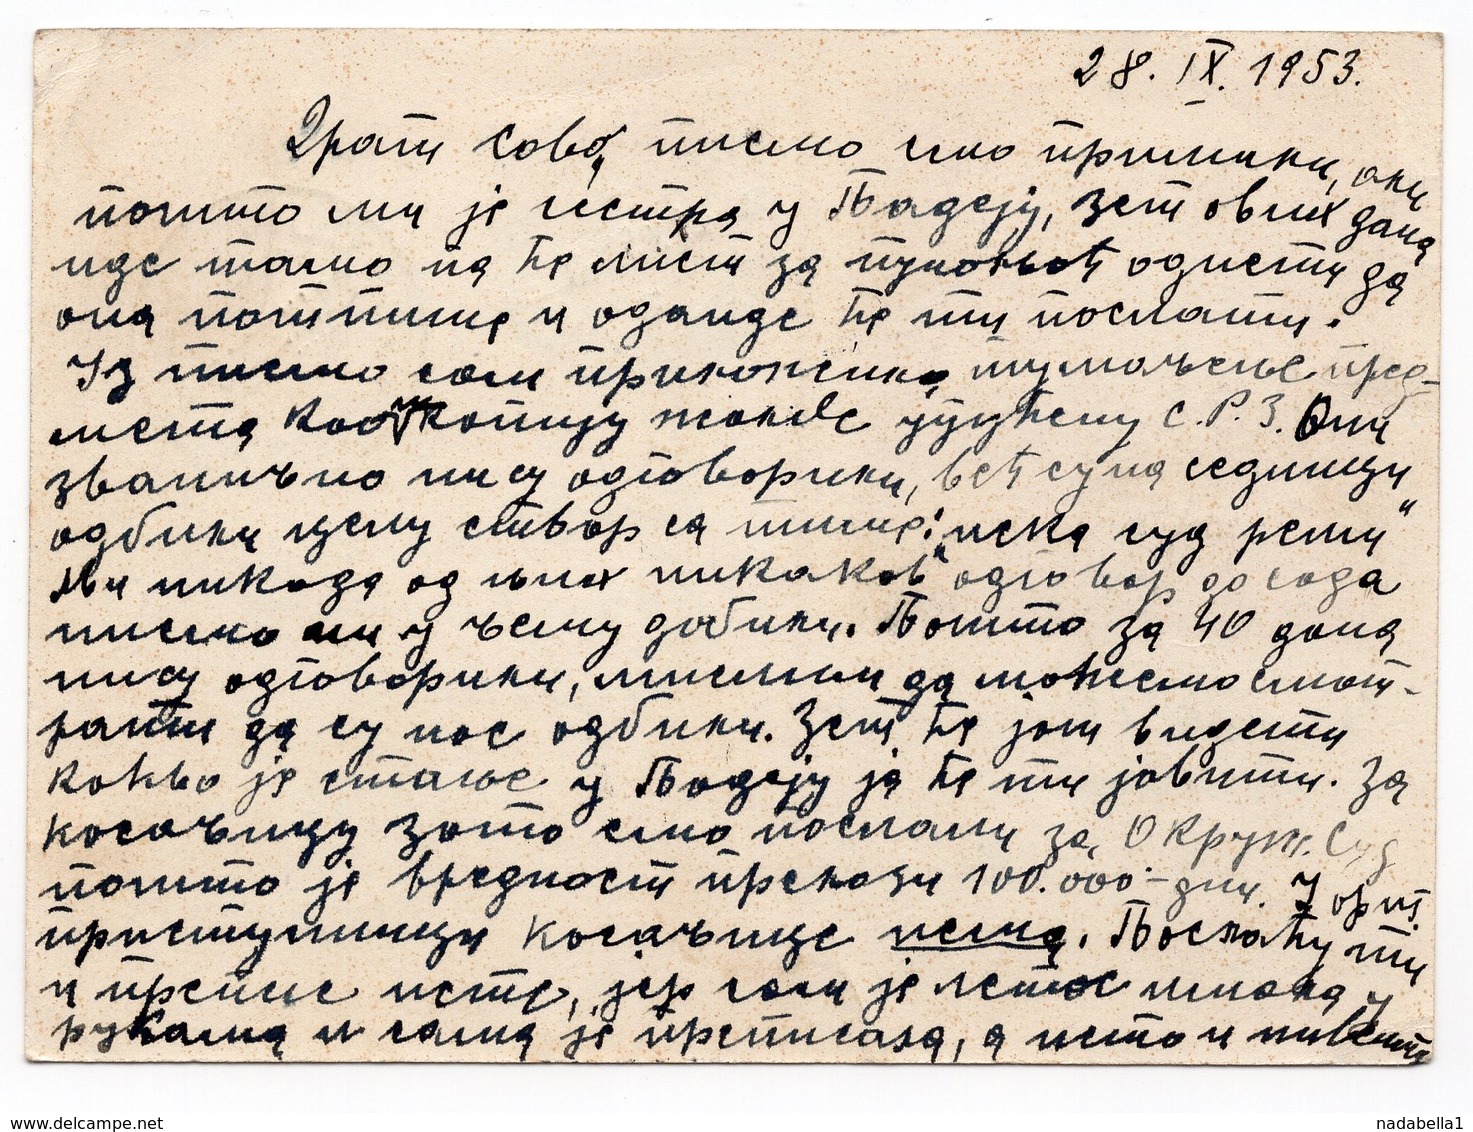 28. IX. 1953.
Драги Саво, писмо смо примили, али
пошто ми је сестра у Бадеју, зет ових дана
иде тамо па ће лист за пуномоћ однети да
она потпише и оданде ће ти послати.
Уз писмо сам приложила тумачење пред-
мета као и копију жалбе упућену С.Р.З. Они
званично нису одговорили, већ су на седници
одбили целу ствар са тиме: "нека суд реши"
Ми никада од њих никакав одговор до сада
писмо ни у чему добили. Пошто за 40 дана
нису одговорили, мислим да можемо смат-
рати да су нас одбили. Зет ће још видети
какво је стање у Бадеју ја ће ти јавити. За
косачицу зато смо послали за Окруж. Суд
пошто је вредност прелази 100.000- дин. У ориг.
приступници косачице нема. Послаћу ти
и препис исте, јер сам је летос нашла у
рукама и сама је преписала, а исто и
nadabella1